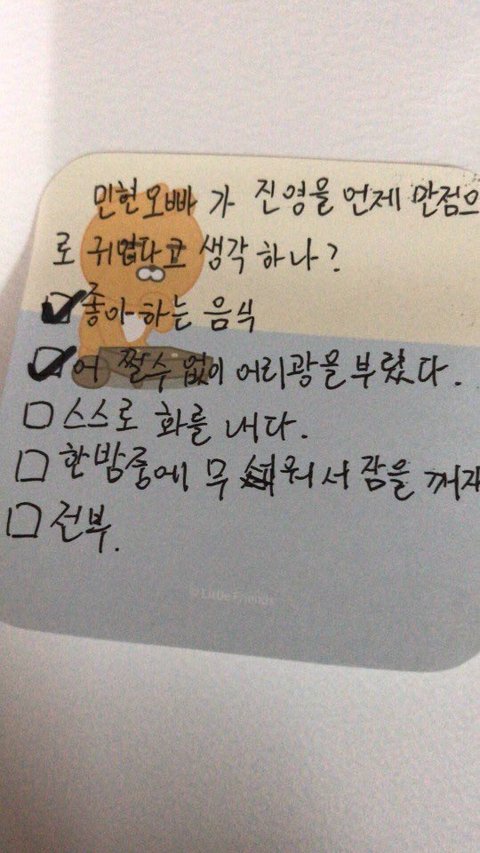 민현오빠 가 진영을 언제 만점으
로 귀엽다고 생각 하나?
좋아하는 음식
어 쩔수 없이 어리광을 부렸다.
스스로 화를 내다.
한밤중에 무 워서 잠을 깨자
전부.
© Little Friends